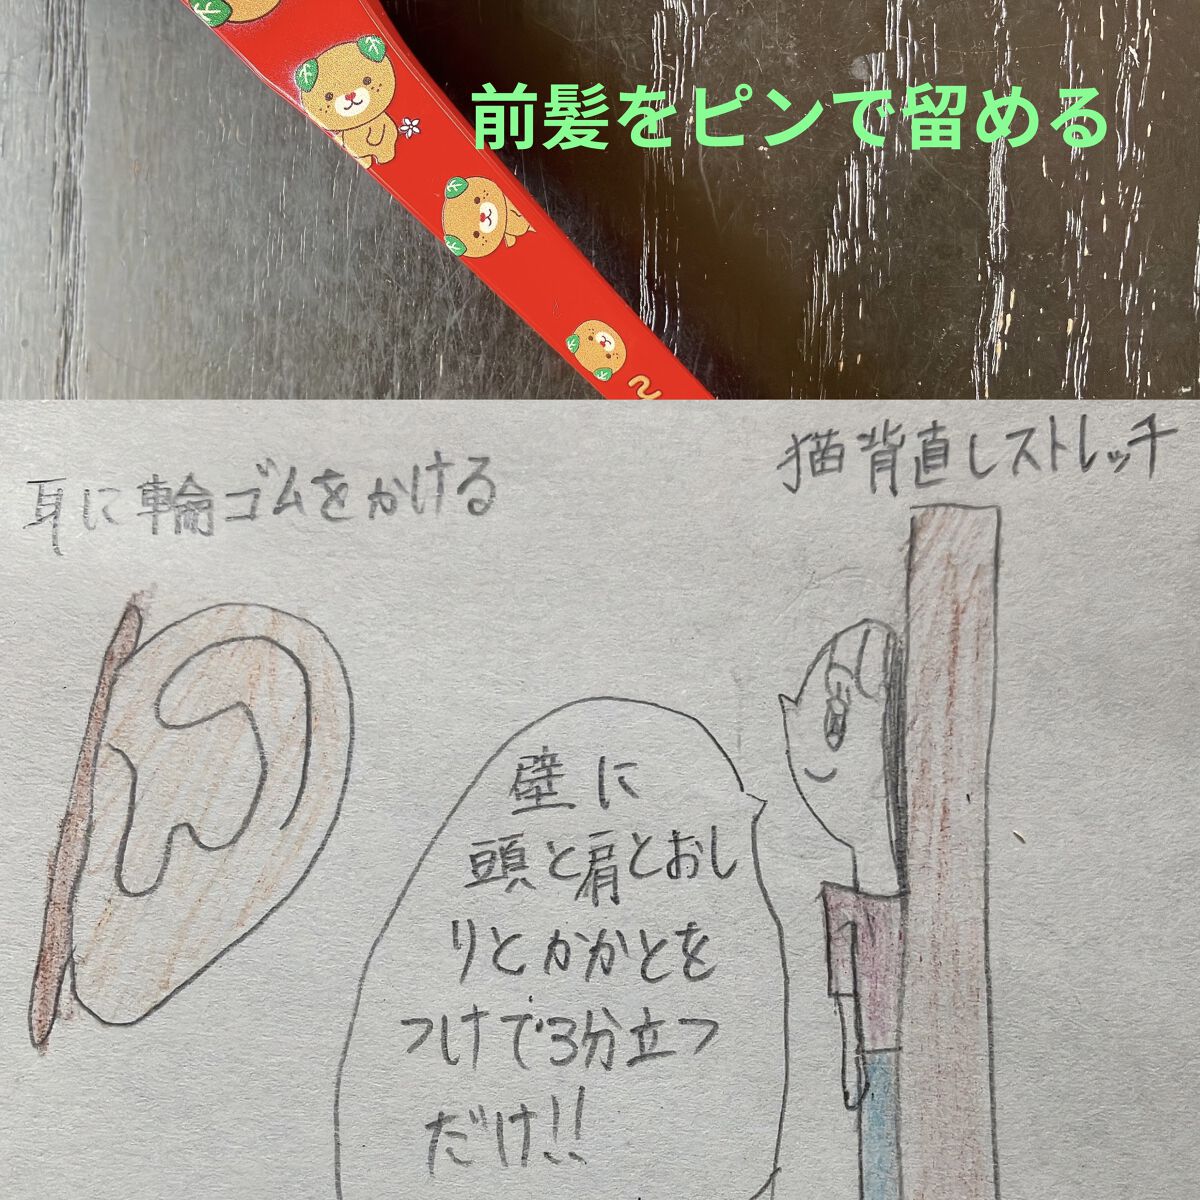 前髪をピンで留める
耳に輪ゴムをかける
猫背直しストレッチ
壁に
頭と肩とおし
りとかかとを
つけて3分立つ
だけ!!